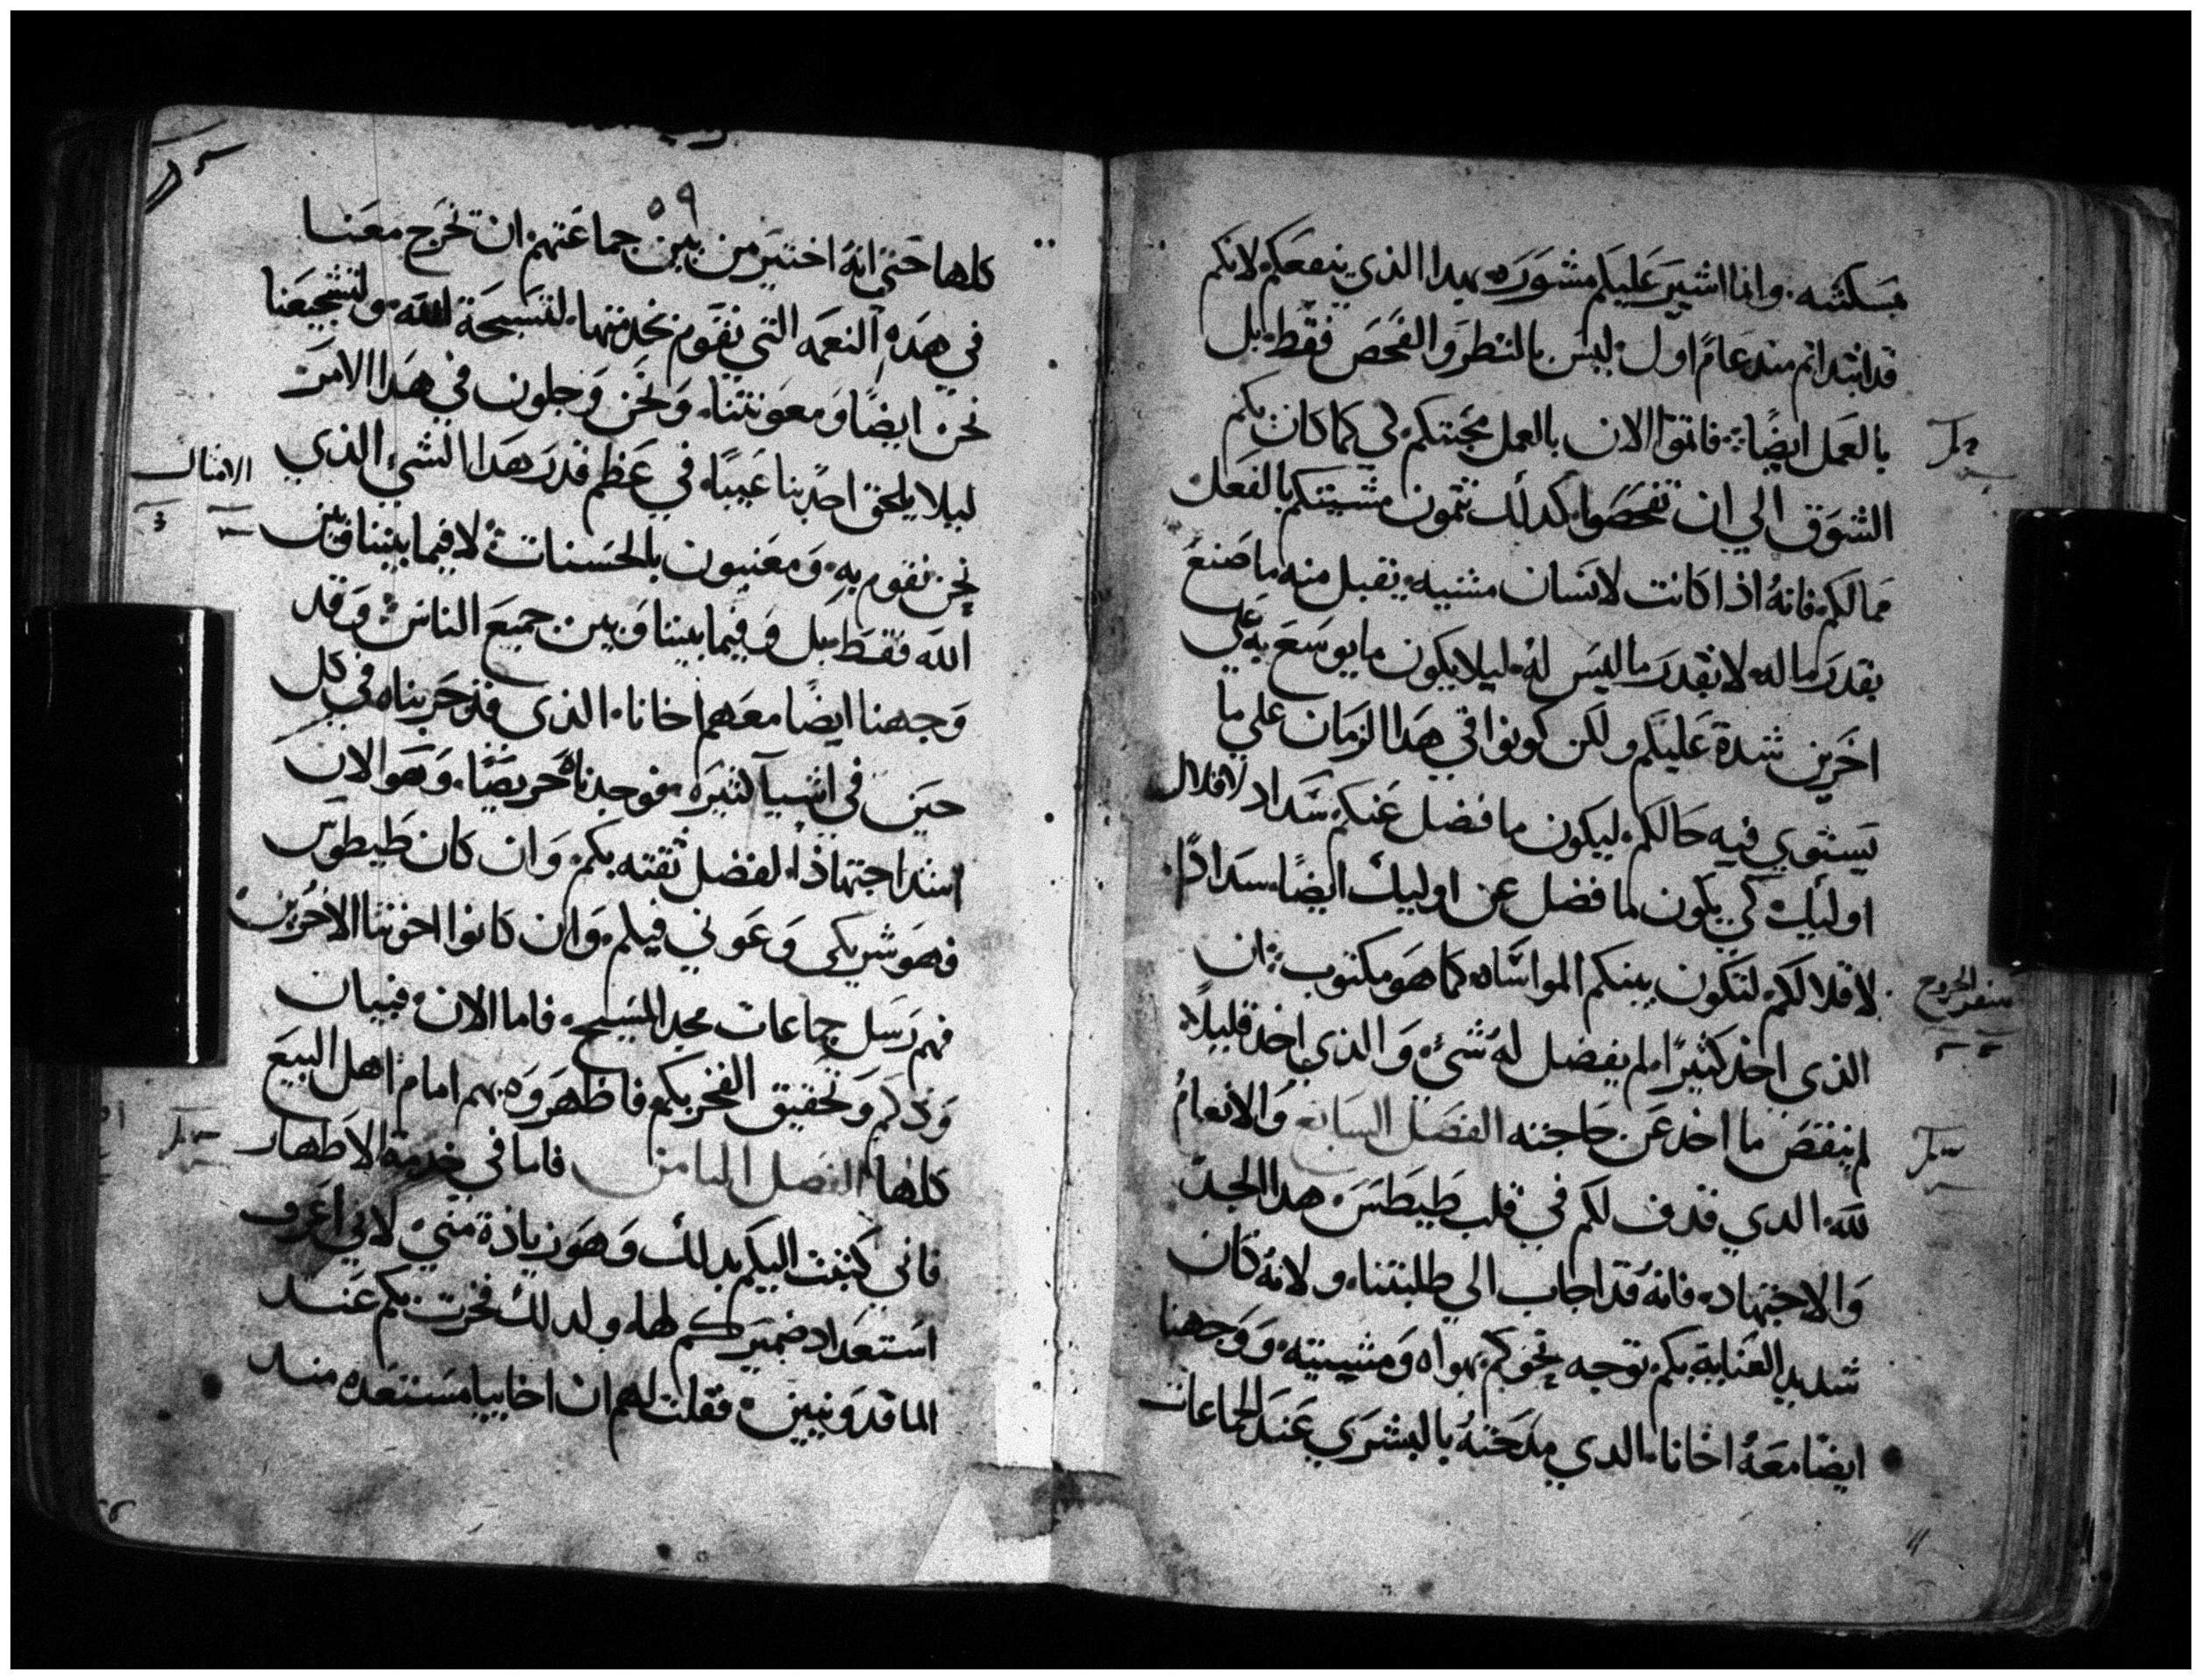 بمسكنته. وانا اشير عليكم مشوره بهدا الذي ينفعكم لانكم
قد ابتداتم مند عام اول ليس بالنظر والفحص فقط بل
بالعمل ايضًا فاتموا الان بالعمل محبتكم لي كما كان بكم
الشوق الي ان تفحصوا كدلك تتمون مشيتكم بالفعل
مما لكم فانهُ اذا كانت لانسان مشيه يقبل منه ما صنع
بقدر ما له لا بقدر ما ليس لهُ ليلا يكون ما يوسع به علي
اخرين شدة عليكم ولكن كونوا في هدا الزمان علي ما
يستوي فيه حالكم ليكون ما فضل عنكم سداد لاقلال
اوليك كي يكون ما فضل عن اوليك ايضًا سدادًا
لاقلالكم لتكون بينكم المواساه كما هو مكتوب ان
سفر الخروج
الذي اخد كثيرًا لم يفضل لهُ شيء والذي اخد قليلًا
لم ينقص ما اخد عن حاجته الفصل السابع والانعامُ
لله الدي قدف لكم في قلب طيطس هدا الجد
والاجتهاد فانهُ قد اجاب الي طلبتنا ولانهُ كان
شديد العناية بكم توجه نحوكم بهواه ومشيته ووجهنا
ايضًا معهُ اخانا الدي مدحتهُ بالبشري عند الجماعات
٥٩
كلها حتي انهُ اختير من بين جماعتهم ان تخرج معنا
في هده النعمه التي نقوم بخدمتها لتسبحة الله ولتشجيعنا
نحن ايضًا ومعونتنا ونحن وجلون في هدا الامر
ليلا يلحق احد بنا عيبًا في عظم قدر هدا الشيء الذي
الامثال
نحن نقوم به ومعنيون بالحسنات لا فيما بيننا وبين
الله فقط بل وفيما بيننا وبين جميع الناس وقد
وجهنا ايضًا معهم اخانا الذي قد جربناه في كل
حين في اشيا كثيره فوجدناهُ حريصًا وهو الان
اشد اجتهاذًا لفضل ثقته بكم وان كان طيطوس
فهو شريكي وعوني فيكم وان كانوا اخوتنا الاخرين
فهم رسل جماعات مجد المسيح فاما الان فبيان
ودكم وتحقيق الفخر بكم فاظهروه بهم امام اهل البيع
كلها الفصل الثامن فاما في خدمة الاطهار
فاني كتبت اليكم بدلك وهو زيادة مني لاني اعرف
استعداد ضميركم لها ولدلك فخرت بكم عند
الماقدونيين فقلت لهم ان اخاييا مستعده مند